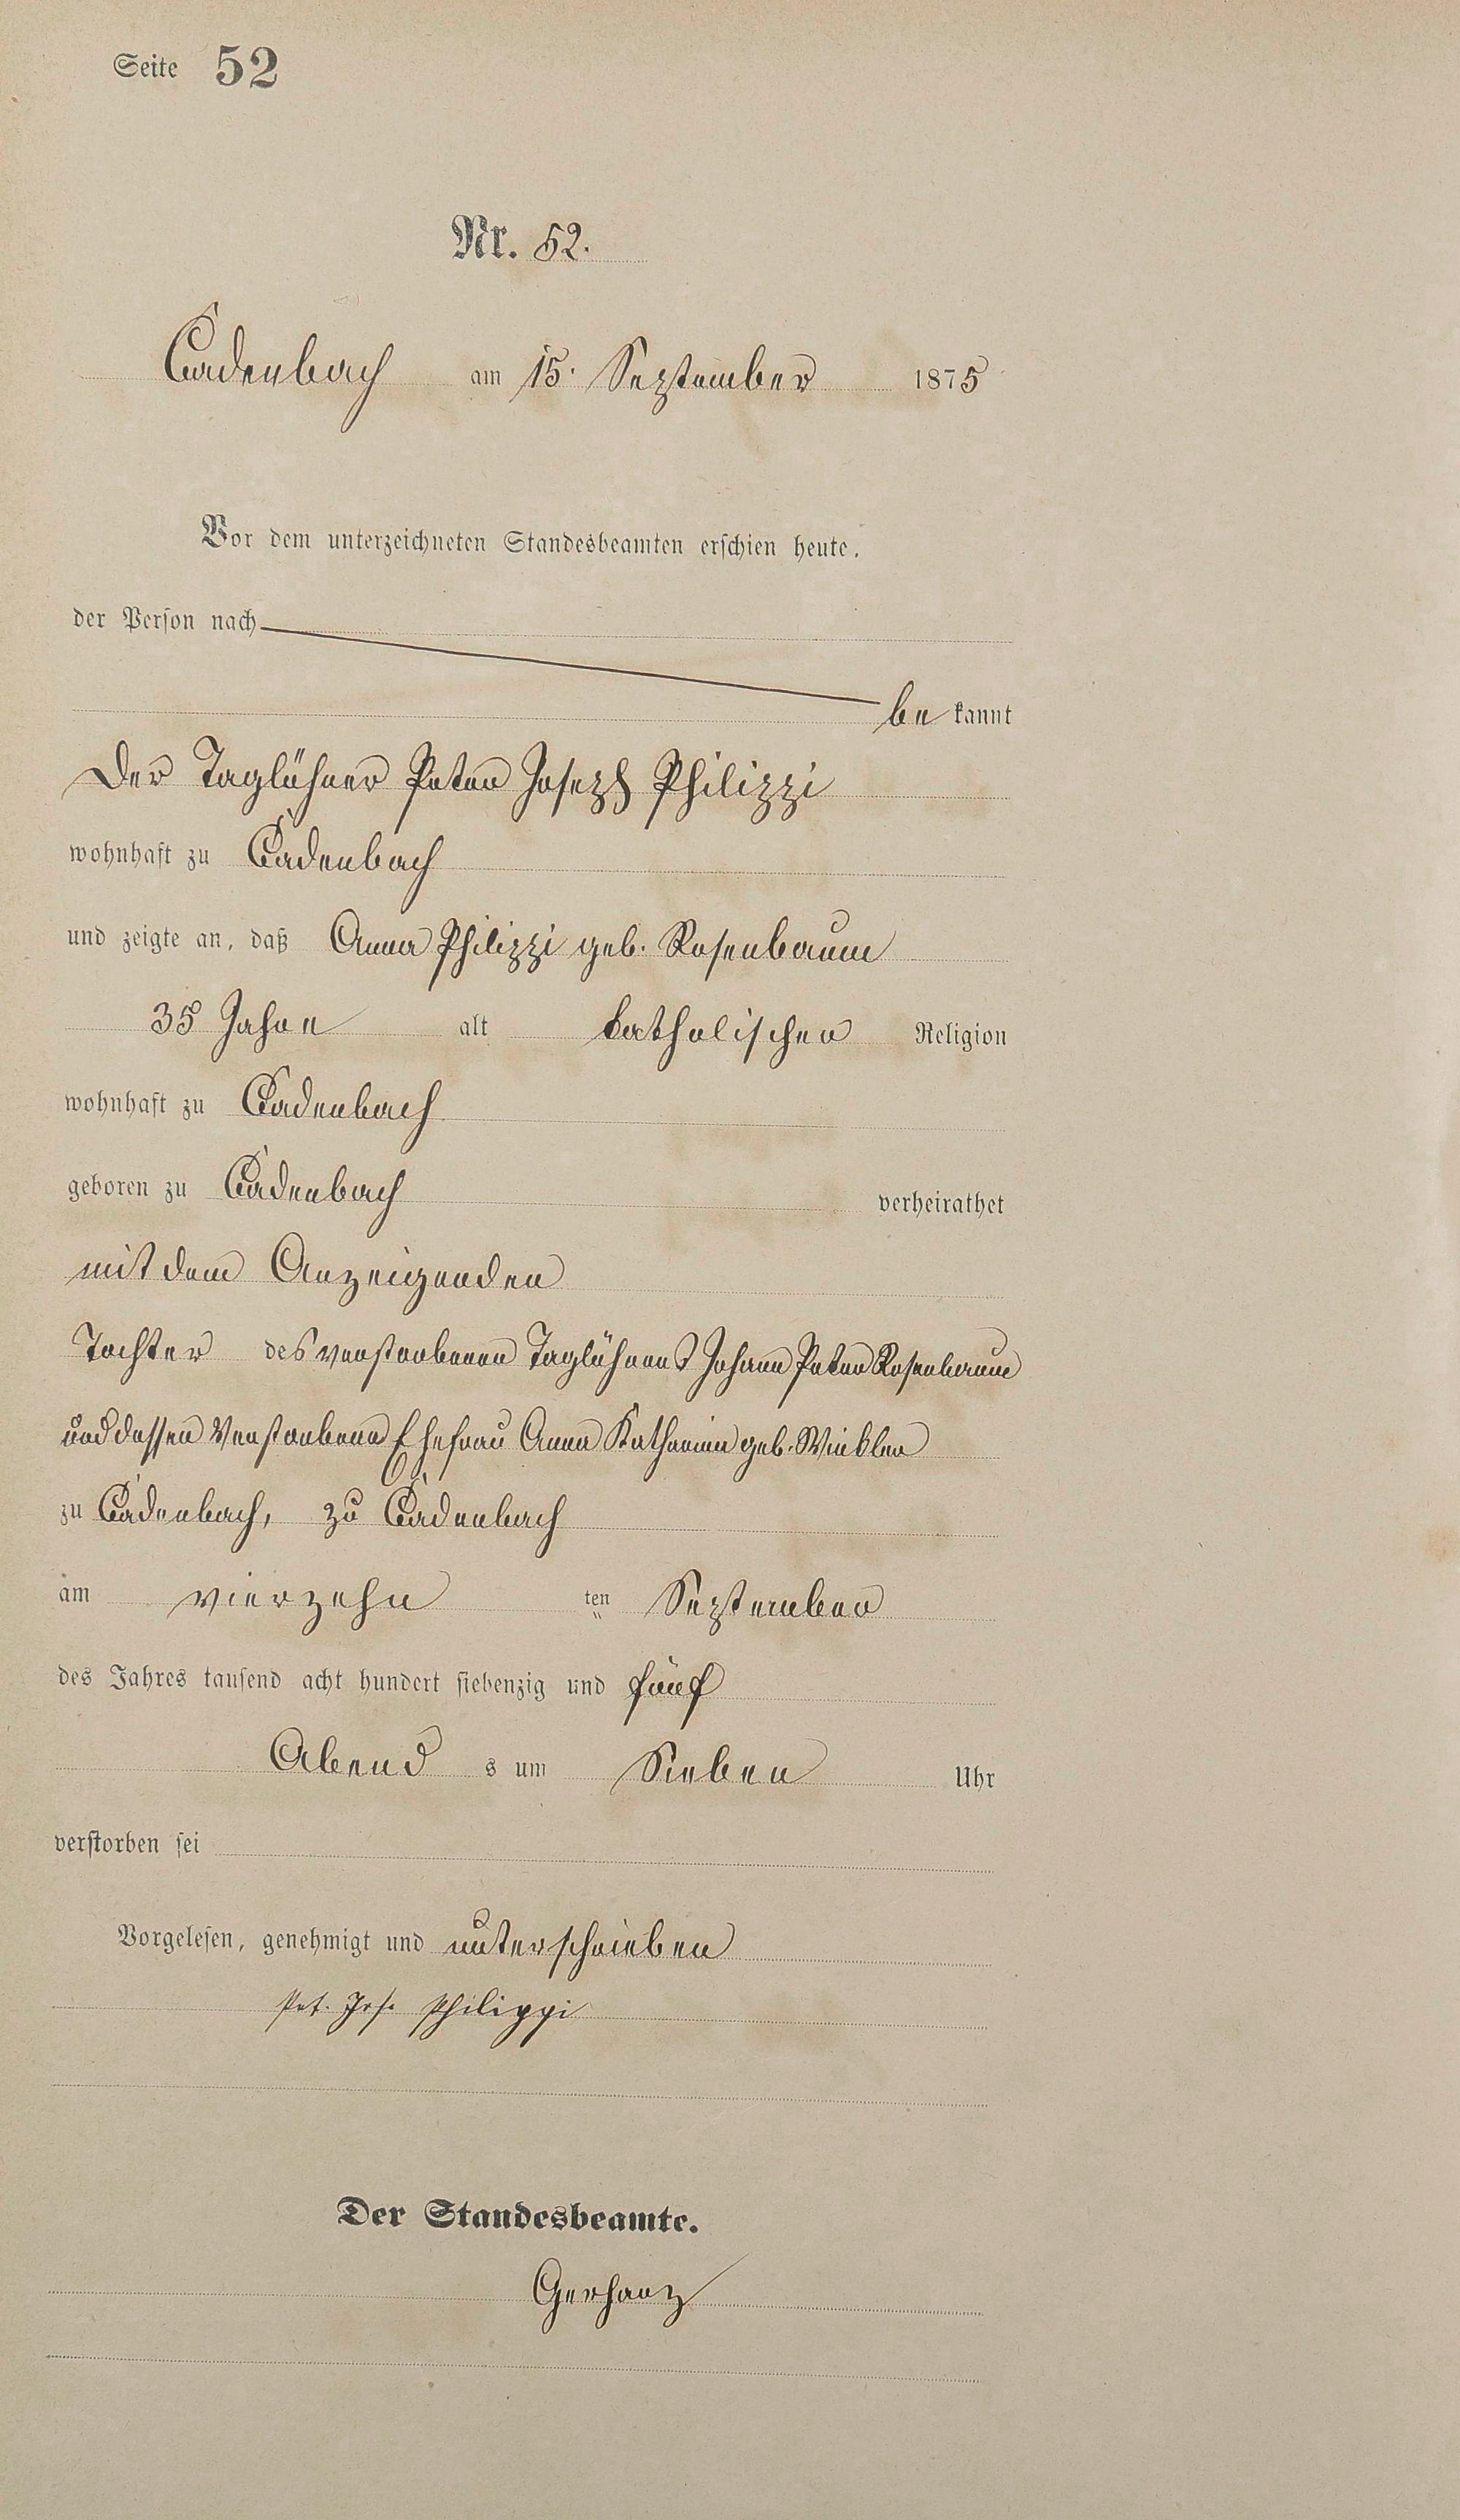 Seite 52
Nr. 52.
Cadenbach am 15. September 1875
Vor dem unterzeichneten Standesbeamten erschien heute,
der Person nach
be kannt
Der Taglöhner Peter Joseph Philippi
wohnhaft zu Cadenbach
und zeigte an, daß Anna Philippi geb. Rosenbaum
35 Jahre alt katholischer Religion
wohnhaft zu Cadenbach
geboren zu Cadenbach verheirathet
mit dem Anzeigenden
Tochter des verstorbenen Taglöhners Johann Peter Rosenbaum
und dessen verstorbene Ehefrau Anna Katharina geb. Winkler
zu Cadenbach, zu Cadenbach
am vierzehn ten September
des Jahres tausend acht hundert siebenzig und fünf
Abend s um Sieben Uhr
verstorben sei
Vorgelesen, genehmigt und unterschrieben
Pet. Jos. Philippi
Der Standesbeamte.
Gerharz